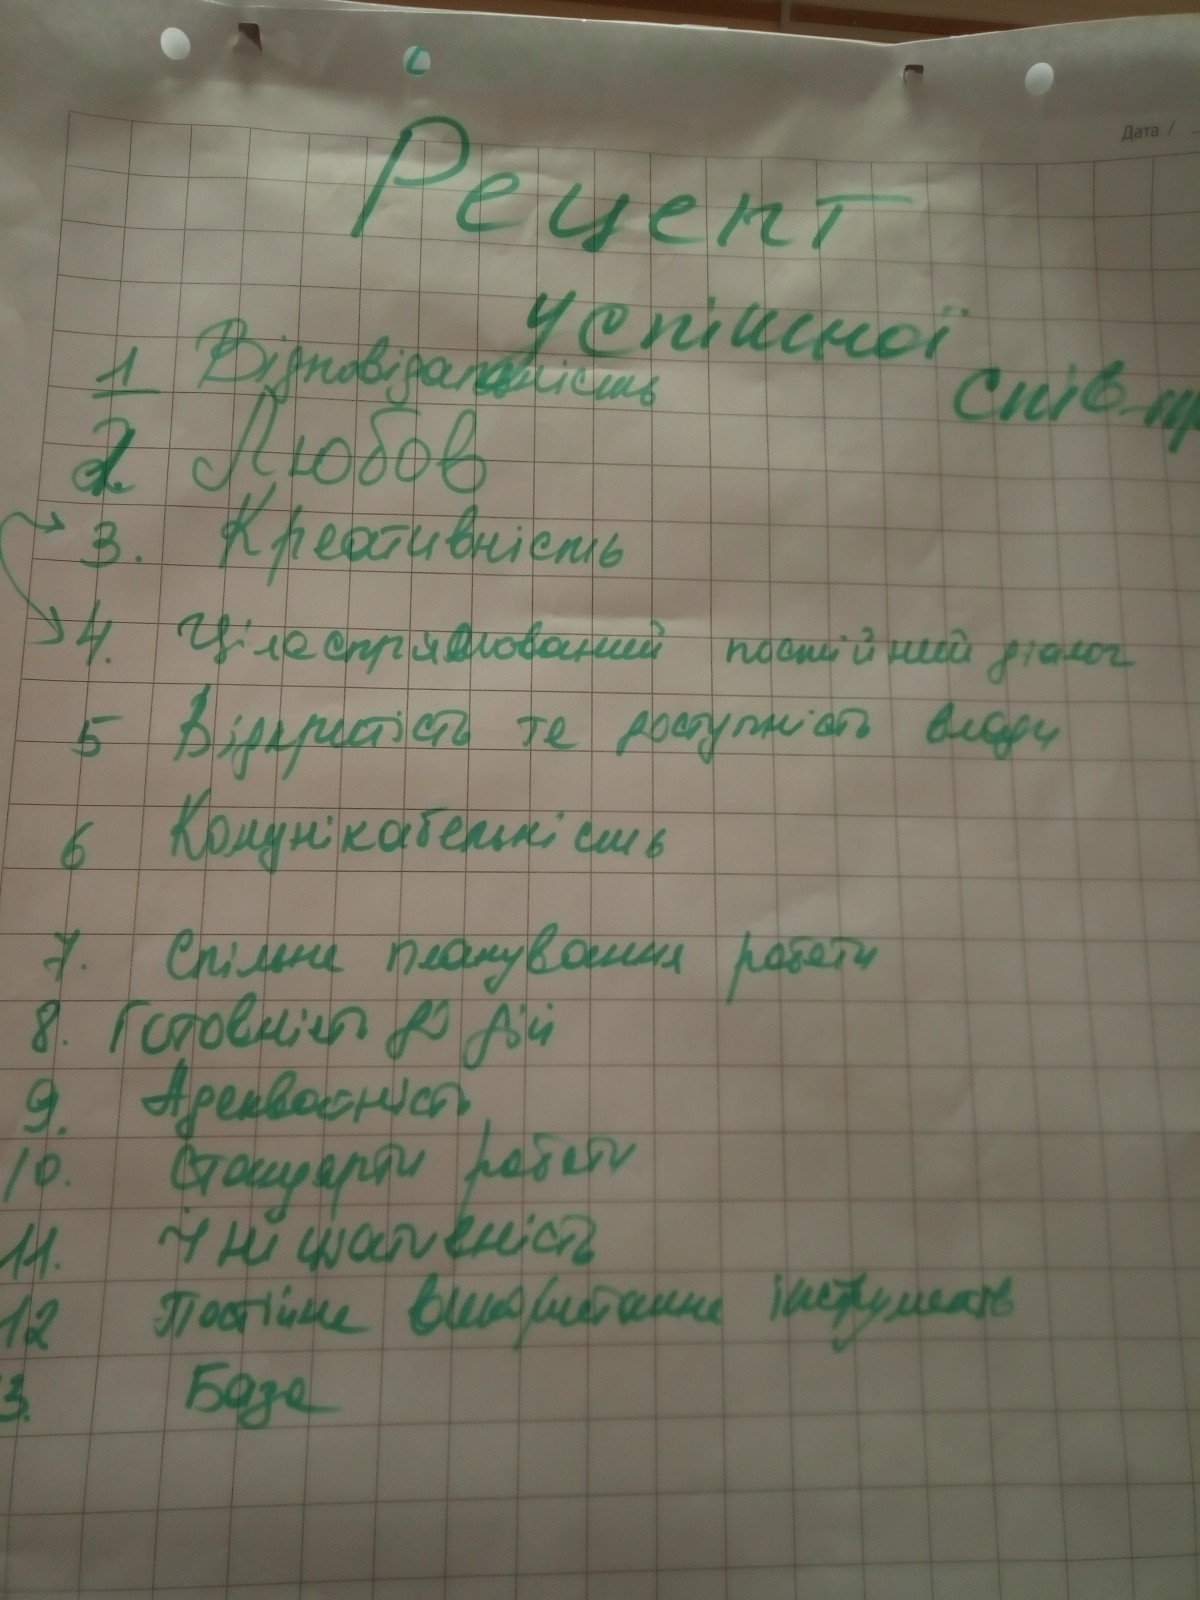 Дата /
Рецепт
успішної
спів-пр
1 Відповідальність
2 Любов
3. Креативність
4. Цілеспрямований постійний діалог
5 Відкритість та доступність влади
6 Комунікабельність
7. Спільне планування роботи
8. Готовність до дій
9. Адекватність
10. Стандарти роботи
11. Ініціативність
12 Постійне використання інструментів
3. База